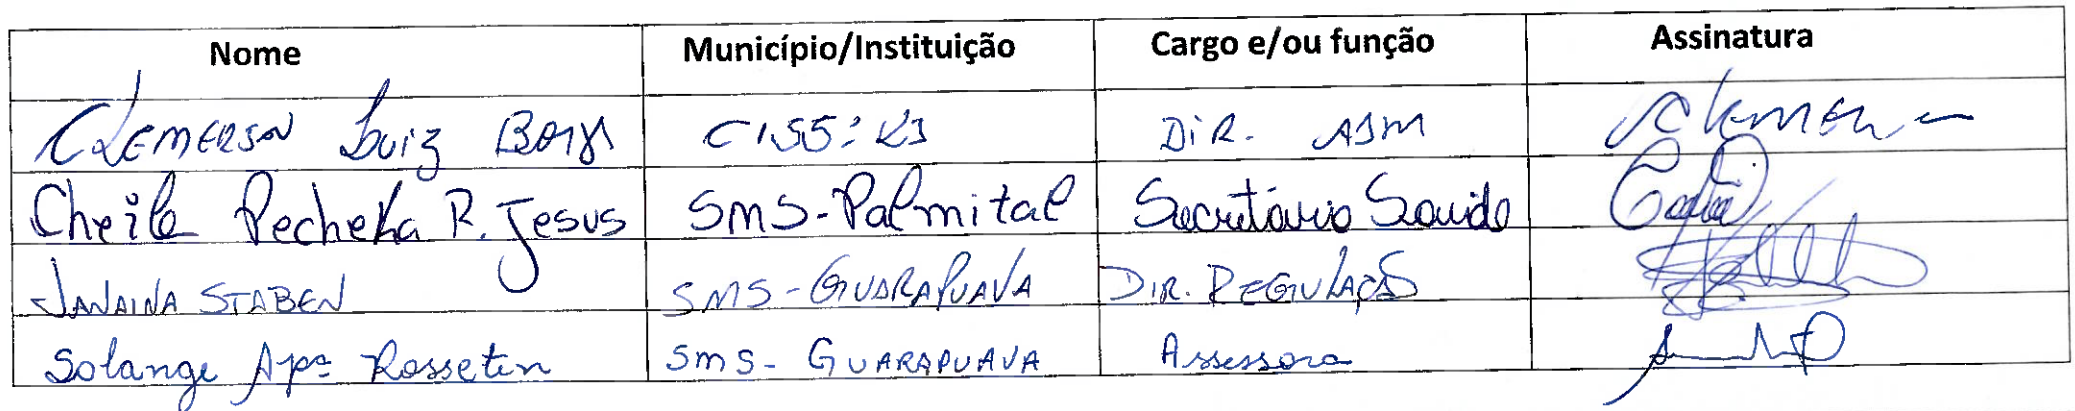 Nome Município/Instituição Cargo e/ou função Assinatura
CLEMERSON Luiz DIR. ADM Clemerson
Cheile Pecheka R. Jesus SMS-Palmital Secretário Saúde
JANAINA STABEN SMS-GUARAPUAVA DIR. REGULAÇÃO
Solange Apª Rosseten SMS- GUARAPUAVA Assessora